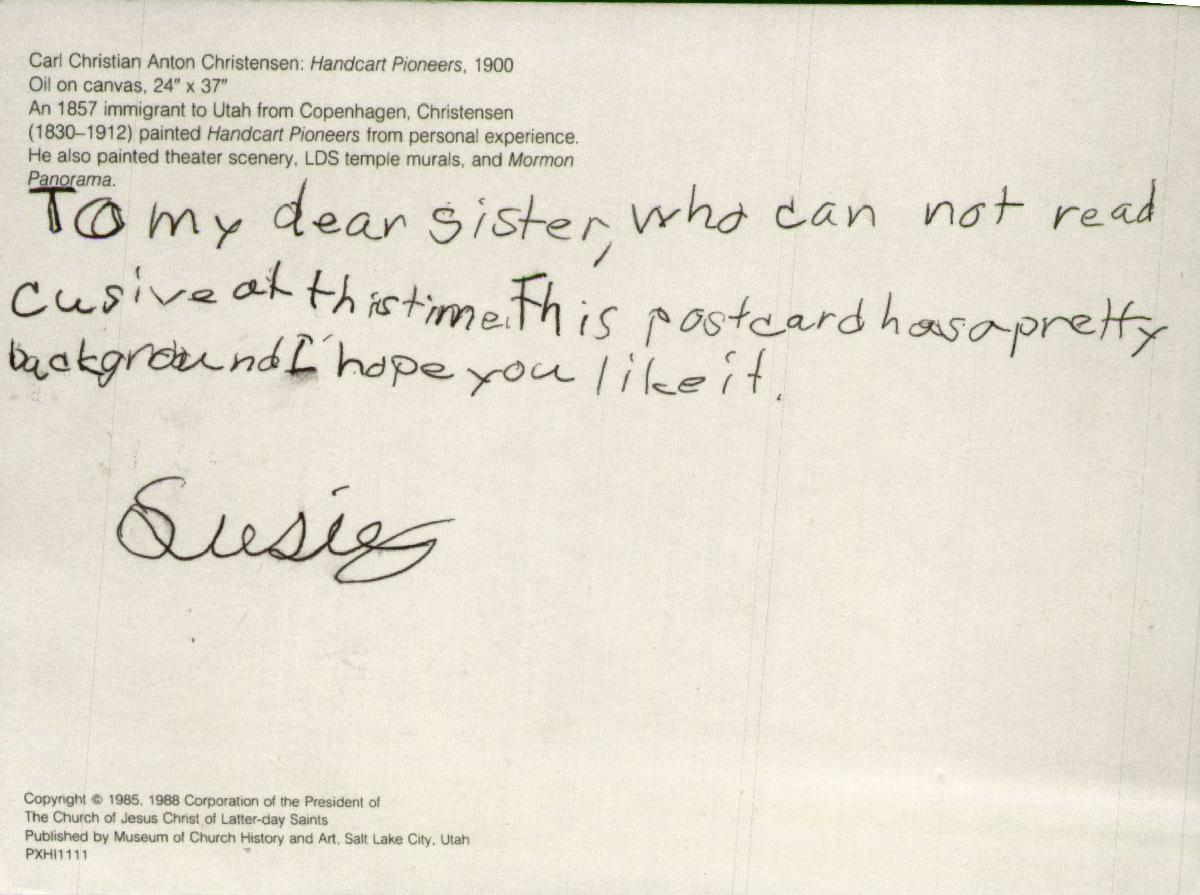 Carl Christian Anton Christensen: Handcart Pioneers, 1900
Oil on canvas, 24" x 37"
An 1857 immigrant to Utah from Copenhagen, Christensen
(1830–1912) painted Handcart Pioneers from personal experience.
He also painted theater scenery, LDS temple murals, and Mormon
Panorama.
To my dear sister, who can not read
cusive at this time. This postcard has a pretty
background I hope you like it.
Susie
Copyright © 1985, 1988 Corporation of the President of
The Church of Jesus Christ of Latter-day Saints
Published by Museum of Church History and Art, Salt Lake City, Utah
PXHI1111